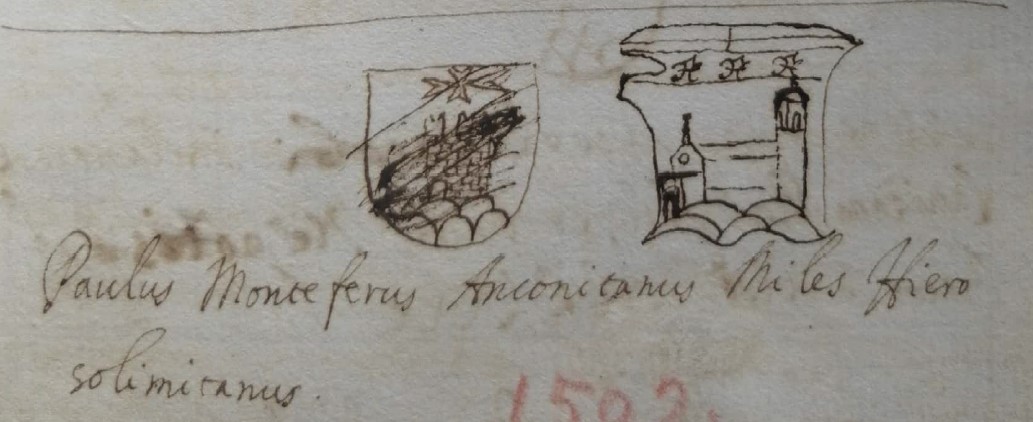 Paulus Monteferus Anconitanus Miles Hiero
solimitanus.
1592.